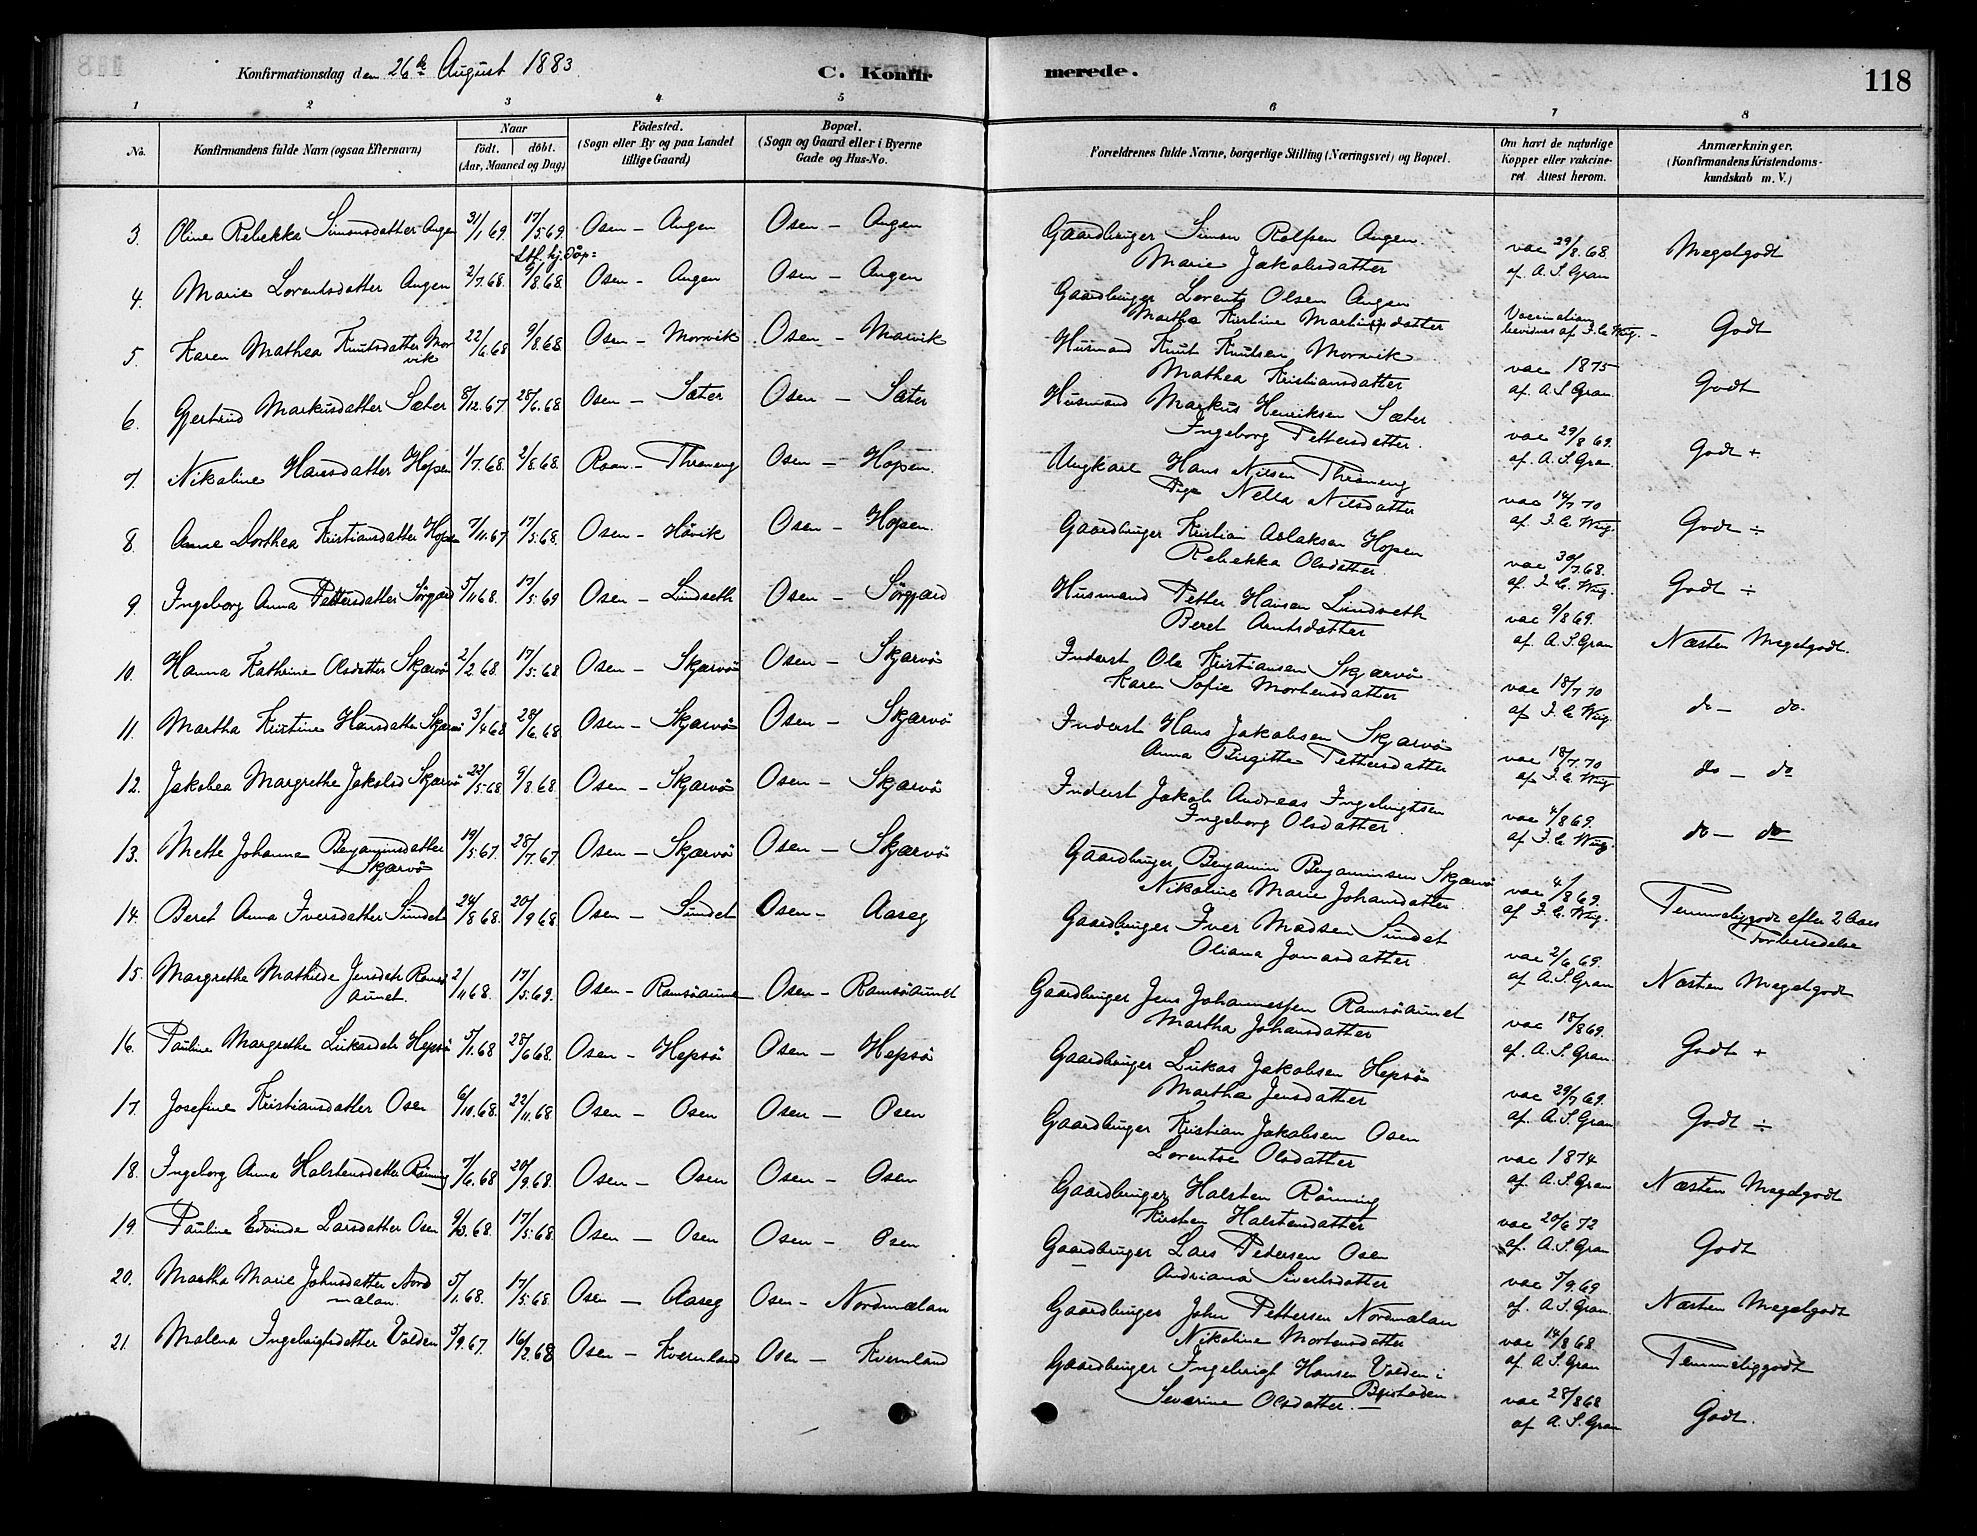 Konfirmationsdag den 26de August 1883.
C. Konfir-
merede.
118
1 2 3 4 5 6 7 8
No.
Konfirmandens fulde Navn (ogsaa Efternavn)
Naar
födt. döbt.
(Aar, Maaned og Dag)
Födested.
(Sogn eller By og paa Landet
tillige Gaard)
Bopæl.
(Sogn og Gaard eller i Byerne
Gade og Hus-No.
Forældrenes fulde Navne, borgerlige Stilling (Næringsvei) og Bopæl.
Om havt de naturlige
Kopper eller vakcine-
ret Attest herom.
Anmærkninger.
(Konfirmandens Kristendoms-
kundskab m. V.)
3. Oline Rebekka Simonsdatter Angen 31/1 69 17/5 69. Osen – Angen Osen – Angen Gaardbruger Simon Rolfsen Angen vac 29/8.68. Megetgodt
Stf. hj. Döp= Marie Jakobsdatter af A. S. Gran
4. Marie Lorentsdatter Angen 2/7.68. 9/8.68. Osen – Angen Osen – Angen Gaardbruger Lorents Olsen Angen Vaccination Godt
Martha Kirstine Martinsdatter bevidnes af J. C. Wug.
5. Karen Mathea Knutsdatter Mor 22/6.68 9/8.68. Osen – Morvik Osen – Morvik Husmand Knut Knutsen Morvik vac 1875 Godt
vik Mathea Kristiansdatter af A. S. Gran.
6. Gjertrud Markusdatter Sæter 8/12.67. 28/6.68. Osen – Sæter Osen – Sæter Husmand Markus Henriksen Sæter vac 29/8 69. Godt +
Ingeborg Pettersdatter. af. A. S. Gran.
7. Nikoline Hansdatter Hopen 1/7.68. 2/8.68. Roan – Threneng Osen – Hopen. Ungkarl Hans Nilsen Threneng vac 14/7 70 Godt ÷
Pige Nella Nilsdatter af J. C. Wug.
8. Anne Dorthea Kristiansdatter Hopen 7/11.67 17/5.68. Osen – Håvik Osen – Hopen. Gaardbruger Kristian Aslaksen Hopen vac 30/7.68. Godt ÷
Rebekka Olsdatter. af. J. C. Wug.
9. Ingeborg Anna Pettersdatter Sörgjærd 5/11 68. 17/5.69 Osen – Lindseth Osen – Sörgjærd Husmand Petter Hansen Lindseth vac 9/8 69. Næsten Megetgodt.
Beret Arntsdatter af. A. S. Gran
10. Hanna Kathrine Olsdatter Skjærvö 2/2.68. 17/5.68. Osen – Skjærvö Osen – Skjærvö Inderst Ole Kristiansen Skjærvö vac 18/7 70 do – do
Karen Sofie Mortensdatter af J. C. Wug.
11. Martha Kristine Hansdatter Skjærvö 3/4 68 28/6.68. Osen – Skjærvö Osen – Skjærvö Inderst Hans Jakobsen Skjærvö vac 18/7.70 do – do
Anna Birgitte Pettersdatter af J. C. Wug
12. Jakobea Margrethe Jakobsd Skjærvö 22/5.68 9/8.68. Osen – Skjærvö Osen – Skjærvö Inderst Jakob Andreas Ingebrigtsen vac 4/8 69. do – do
Ingeborg Olsdatter. af J. C. Wug.
13. Mette Johanna Benjaminsdatter 19/5.67. 28/7.67. Osen – Skjærvö Osen – Skjærvö Gaardbruger Benjamin Benjaminsen Skjærvö vac 4/8 69. Temmeliggodt efter 2 Aars
Skjærvö Nikoline Marie Johansdatter af J. C. Wug. Forberedelse
14. Beret Anna Iversdatter Sundet 24/8 68. 20/9 68 Osen – Sundet Osen – Aaseg Gaardbruger Iver Madsen Sundet vac 2/6 69. Næsten Megetgodt
Oliana Jonasdatter. af A. S. Gran
15. Margrethe Mathilde Jensdatr Ramsö 2/11 68. 17/5.69. Osen – Ramsöaunet Osen – Ramsöaunet Gaardbruger Jens Johannessen Ramsöaunet vac 18/8 69. Godt +
aunet. Martha Johansdatter af. A. S. Gran.
16. Pauline Margrethe Lukasdatr Hepsö 5/1.68 28/6 68. Osen – Hepsö Osen – Hepsö Gaardbruger Lukas Jakobsen Hepsö vac 29/7 69. Godt ÷
Martha Jensdatter af. A. S. Gran
17. Josefine Kristiansdatter Osen 6/10.68. 22/11.68 Osen – Osen Osen – Osen Gaardbruger Kristian Jakobsen Osen vac 1874 Næsten Megetgodt
Lorentse Olsdatter af. A. S. Gran
18. Ingeborg Anna Halstensdatter Rönning 7/6.68 20/9.68. Osen – Osen Osen – Osen Gaardbruger Halsten Rönning vac 20/6 72 Godt
Kirsten Halstensdatter af. A. S. Gran
19. Pauline Edvinde Larsdatter Osen 9/3.68. 17/5.68. Osen – Osen Osen – Osen Gaardbruger Lars Pedersen Osen vac 5/9.69 Næsten Megetgodt
Andriana Sivertsdatter af. A. S. Gran.
20. Martha Marie Johnsdatter Nord 5/1.68. 17/5.68. Osen – Aaseg Osen – Nordmælan Gaardbruger John Pettersen Nordmælan vac 14/8 68 Temmeliggodt
mælan. Nikoline Mortensdatter af. A. S. Gran
21. Malena Ingebrigtsdatter Volden 5/9.67. 16/2.68 Osen – Kvernland Osen – Kvernland Gaardbruger Ingebrigt Hansen Volden i vac 28/8 68 Godt.
Severine Olsdatter. – Bejstaden af A. S. Gran